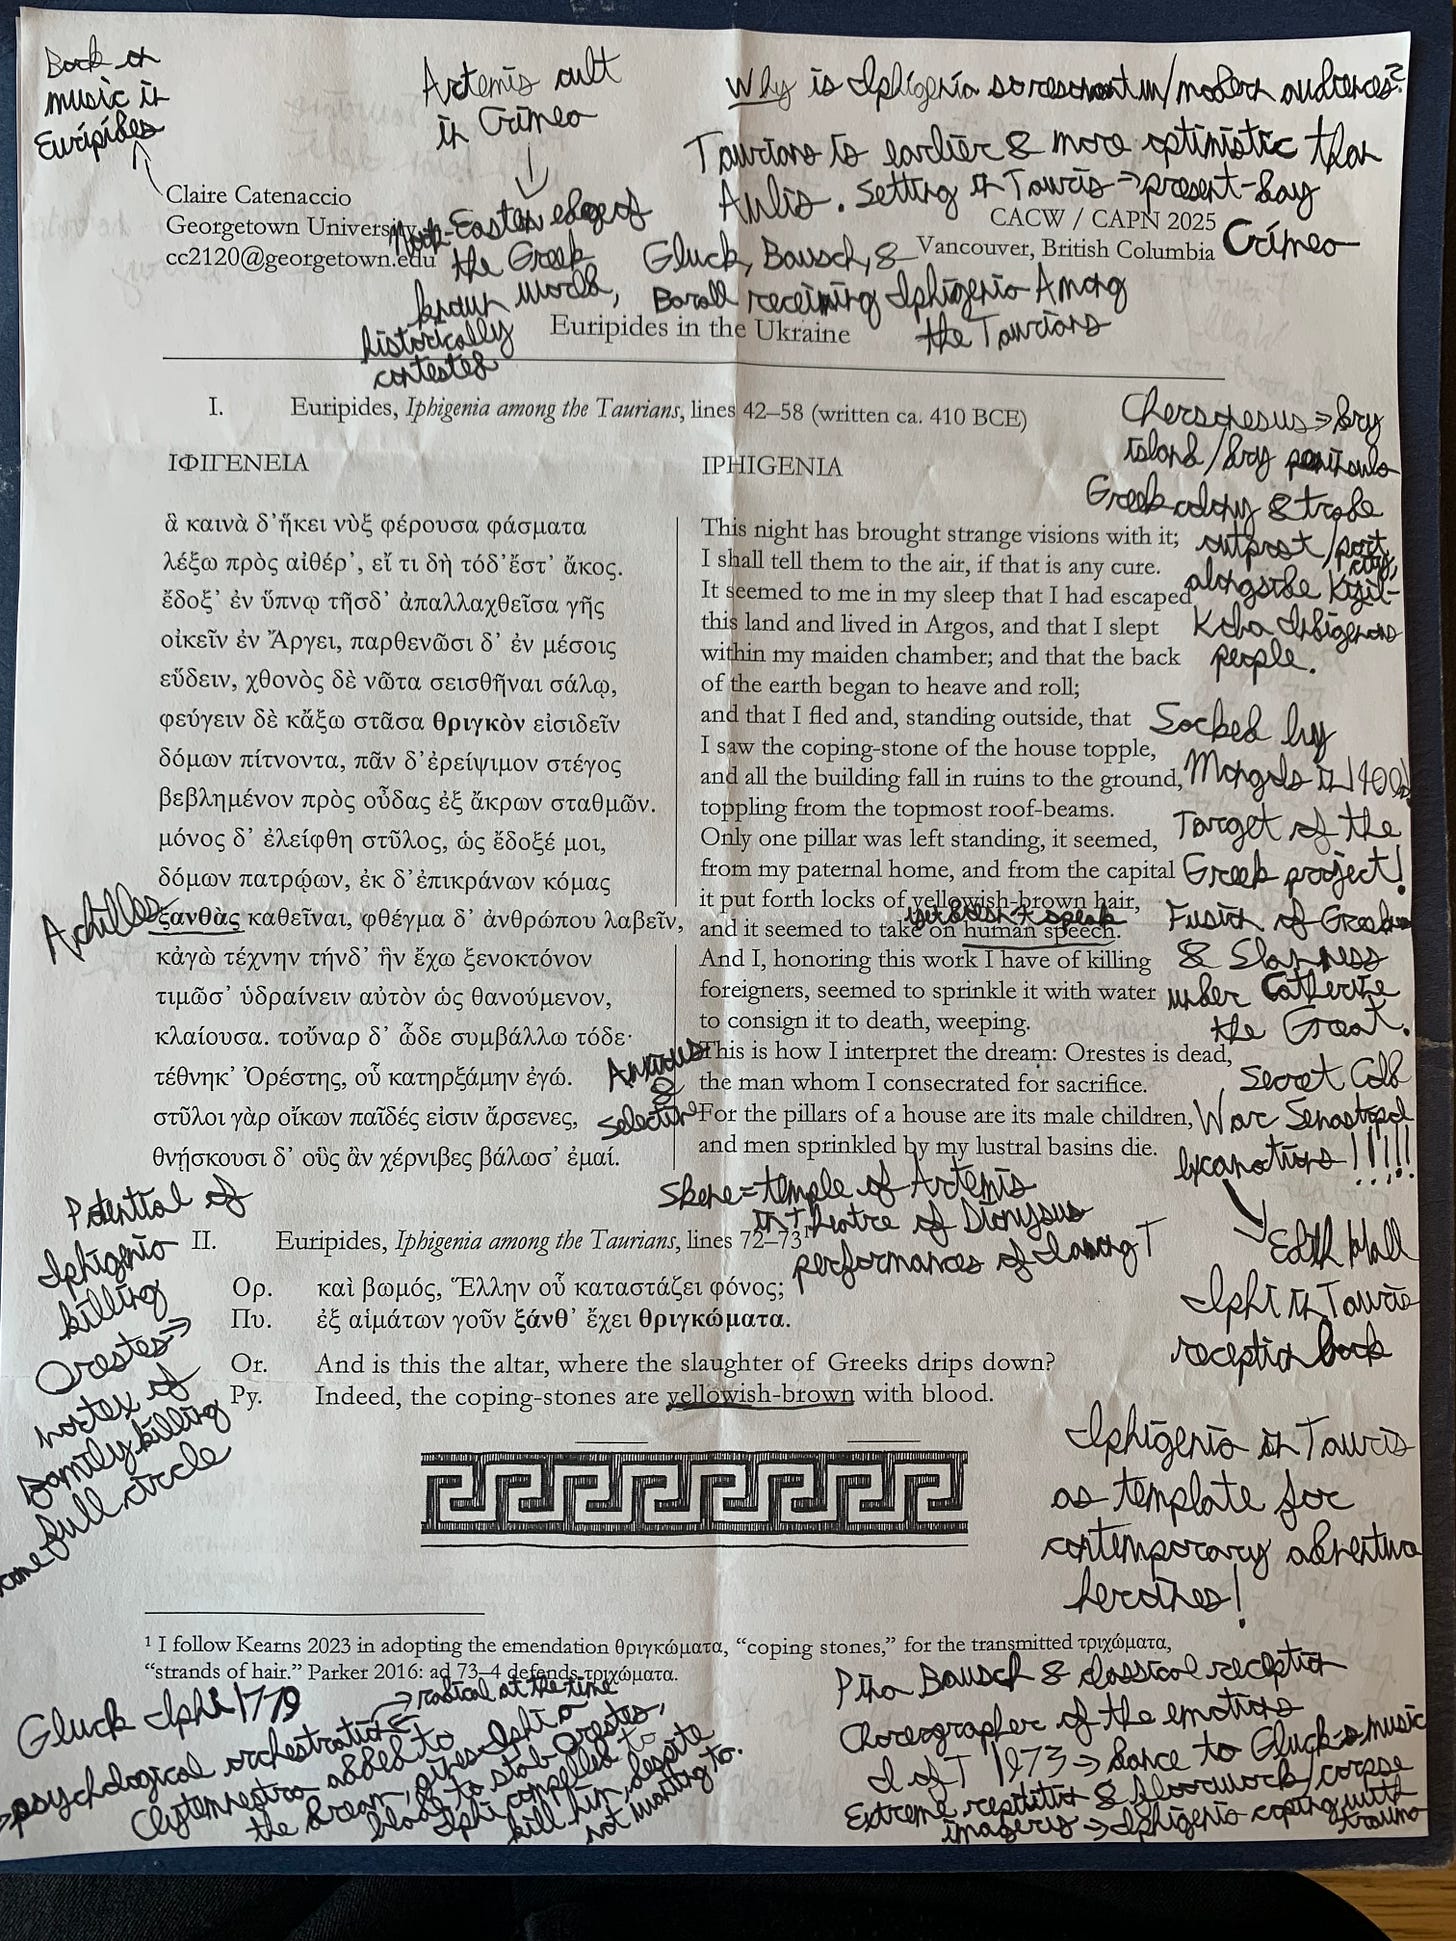 Book on
music in
Euripides
Artemis cult
in Crimea
Why is Iphigenia so resonant w/ modern audiences?
Taurians is earlier & more optimistic than
Aulis. Setting in Tauris → present-day
Crimea
Claire Catenaccio
Georgetown University
cc2120@georgetown.edu
North-Eastern edge of
the Greek
known world,
historically
contested
CACW / CAPN 2025
Vancouver, British Columbia
Gluck, Bausch, &
receiving Iphigenia Among
the Taurians
Euripides in the Ukraine
I. Euripides, Iphigenia among the Taurians, lines 42–58 (written ca. 410 BCE)
ΙΦΙΓΕΝΕΙΑ
ἃ καινὰ δ’ἥκει νὺξ φέρουσα φάσματα
λέξω πρὸς αἰθέρ’, εἴ τι δὴ τόδ’ἔστ’ ἄκος.
ἔδοξ’ ἐν ὕπνῳ τῆσδ’ ἀπαλλαχθεῖσα γῆς
οἰκεῖν ἐν Ἄργει, παρθενῶσι δ’ ἐν μέσοις
εὕδειν, χθονὸς δὲ νῶτα σεισθῆναι σάλῳ,
φεύγειν δὲ κἄξω στᾶσα θριγκὸν εἰσιδεῖν
δόμων πίτνοντα, πᾶν δ’ἐρείψιμον στέγος
βεβλημένον πρὸς οὖδας ἐξ ἄκρων σταθμῶν.
μόνος δ’ ἐλείφθη στῦλος, ὡς ἔδοξέ μοι,
δόμων πατρῴων, ἐκ δ’ἐπικράνων κόμας
ξανθὰς καθεῖναι, φθέγμα δ’ ἀνθρώπου λαβεῖν,
κἀγὼ τέχνην τήνδ’ ἣν ἔχω ξενοκτόνον
τιμῶσ’ ὑδραίνειν αὐτὸν ὡς θανούμενον,
κλαίουσα. τοὔναρ δ’ ὧδε συμβάλλω τόδε·
τέθνηκ’ Ὀρέστης, οὗ κατηρξάμην ἐγώ.
στῦλοι γὰρ οἴκων παῖδές εἰσιν ἄρσενες,
θνῄσκουσι δ’ οὓς ἂν χέρνιβες βάλωσ’ ἐμαί.
Achilles
IPHIGENIA
This night has brought strange visions with it;
I shall tell them to the air, if that is any cure.
It seemed to me in my sleep that I had escaped
this land and lived in Argos, and that I slept
within my maiden chamber; and that the back
of the earth began to heave and roll;
and that I fled and, standing outside, that
I saw the coping-stone of the house topple,
and all the building fall in ruins to the ground,
toppling from the topmost roof-beams.
Only one pillar was left standing, it seemed,
from my paternal home, and from the capital
it put forth locks of yellowish-brown hair,
yet didn't speak
and it seemed to take on human speech.
And I, honoring this work I have of killing
foreigners, seemed to sprinkle it with water
to consign it to death, weeping.
This is how I interpret the dream: Orestes is dead,
the man whom I consecrated for sacrifice.
For the pillars of a house are its male children,
and men sprinkled by my lustral basins die.
Anxious
&
selective
Chersonesus → dry
island/dry peninsula
Greek colony & trade
outpost/port
city,
alongside Kizil-
Koba indigenous
people.
Sacked by
Mongols in 1400s!
Target of the
Greek project!
Fusion of
& Slavness
under Catherine
the Great.
Secret Cold
War Sevastopol
excavations!!!!!
Edith Hall
Iphi in Tauris
reception book
Skene = temple of Artemis
in theatre of Dionysus
performances of I among T
Potential of
Iphigenia
killing
Orestes →
vortex of
family killing
come full circle
II. Euripides, Iphigenia among the Taurians, lines 72–73¹
Ορ. καὶ βωμός, Ἕλλην οὗ καταστάζει φόνος;
Πυ. ἐξ αἱμάτων γοῦν ξάνθ’ ἔχει θριγκώματα.
Or. And is this the altar, where the slaughter of Greeks drips down?
Py. Indeed, the coping-stones are yellowish-brown with blood.
Iphigenia in Tauris
as template for
contemporary adventure
heroines!
¹ I follow Kearns 2023 in adopting the emendation θριγκώματα, “coping stones,” for the transmitted τριχώματα,
“strands of hair.” Parker 2016: ad 73–4 defends τριχώματα.
Gluck Iphi 1779
→ radical at the time
→ psychological orchestration
Clytemnestra added to
the dream, gives Iphi a
blade to stab Orestes,
Iphi compelled to
kill him, despite
not wanting to.
Pina Bausch & classical reception
Choreographer of the emotions
I of T 1973 → dance to Gluck's music
Extreme repitition & floorwork/corpse
imagery → Iphigenia coping with
trauma